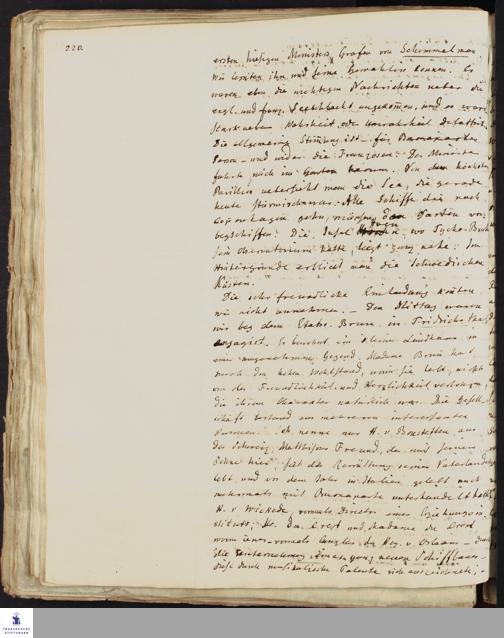 220.
ersten hiesigen Ministers, Grafen von Schimmelman
Wir lernten ihn und seine Gemahlin kennen. Es
waren eben die wichtigen Nachrichten ueber die
engl. und franz. Seeschlacht angekommen, und es ward
stark ueber Wahrheit oder Unwahrheit debattirt.
Die allgemeine Stimmung ist für Buonaparte
Person - und wider die Franzosen. Der Minister
fuhrte mich im Garten herum. Von dem höchsten
Pavillon uebersieht man die See, die gerade
heute stürmisch war. Alle Schiffe die nach
Copenhagen gehn, müssen den Garten vor-
beyschiffen. Die Insel Hveen, wo Tycho-Brah
sein Observatorium hatte, liegt ganz nahe; Im
Hintergrunde erblickt man die Schwedischen
Küsten.
Die sehr freundliche Einladung konten
wir nicht annehmen. - Den Mittag waren
wir bey dem Etatsr. Brun, in Fridrichsthal
engagirt. Er bewohnt ein kleines Landhaus in
einer angenehmen Gegend. Madame Brun hat
durch den hohen Wohlstand, worin sie lebt, nichts
von der Freundlichkeit und Herzlichkeit verlohren,
die ihrem Charakter natürlich war. Die Gesell-
schaft bestand aus mehreren interessanten
Personen. Ich nenne nur H. v. Bonstetten aus
der Schweiz, Matthisons Freund, der mit seinem
Sohne hier seit der Revolution seines Vaterlandes
lebt, und vor dem Jahr in Italien gelebt auch
mehrmals mit Buonaparte unterhandelt hat,
H. v. Wickede vormals Director eines Erziehungsin-
stituts, Mr. du Crest und Madame du Crest
wovon jener vormals Canzler des Herz. v. Orleans - durch
die Unternehmung eines ganz neuen Schiffbaus -
diese durch musikalische Talente sich auszeichnete; -
FRANCKESCHE
STIFTUNGEN